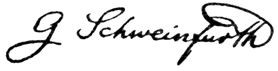 G Schweinfurth